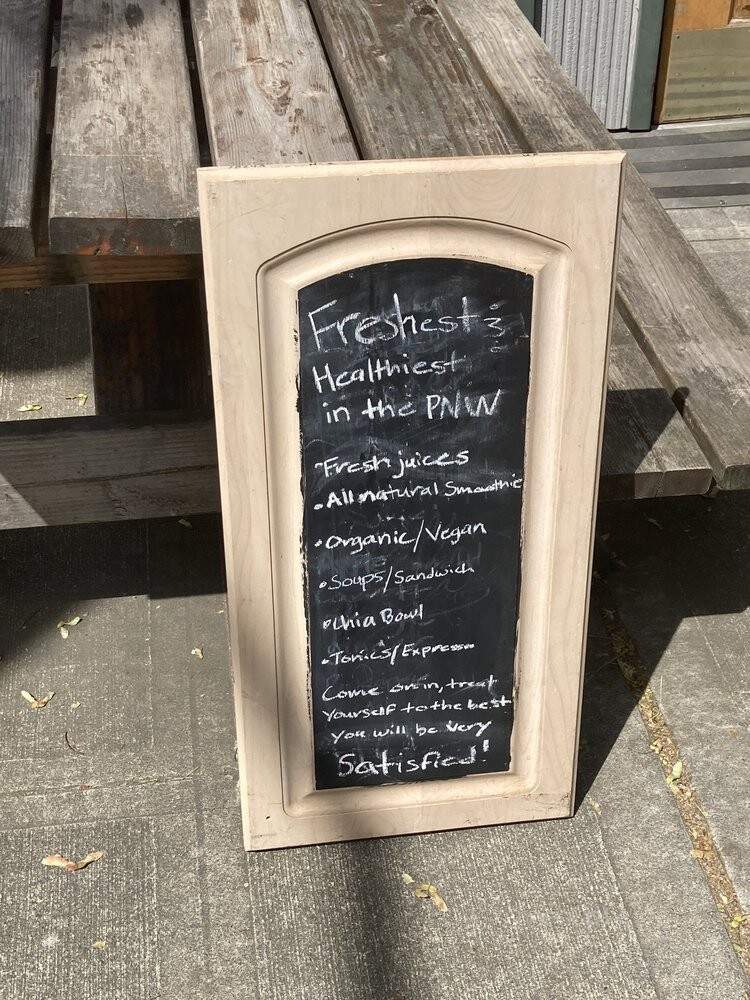 Freshest &
Healthiest
in the PNW
• Fresh juices
• All natural Smoothie
• Organic/Vegan
• Soups/Sandwich
• Chia Bowl
• Tonics/Expresso
Come on in, treat
yourself to the best
you will be very
Satisfied!